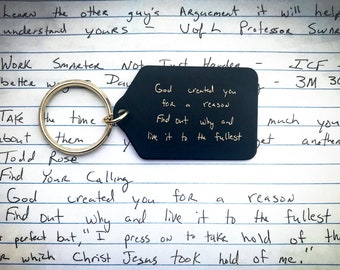 Learn the other guy's Arguement it will help
understand yours - UofL Professor
Work Smarter Not Just Harder - ICF
better way - 3M
Take the time much you
about them get another
Todd Rose
Find Your Calling
God created you for a reason
Find out why and live it to the fullest
perfect but, "I press on to take hold of th
or which Christ Jesus took hold of me."
God created you
for a reason
Find out why and
live it to the fullest